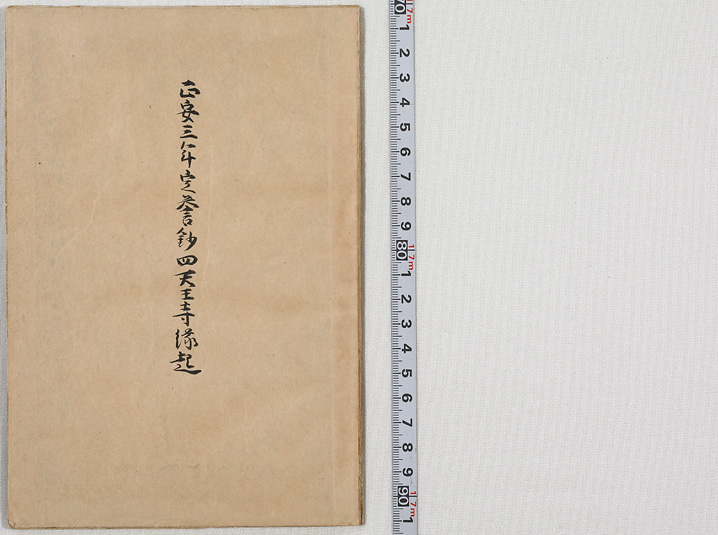 正安三年定誉鈔四天王寺縁起
70 17m
1
2
3
4
5
6
7
8
9
80 17m
1
2
3
4
5
6
7
8
9
90 17m
1